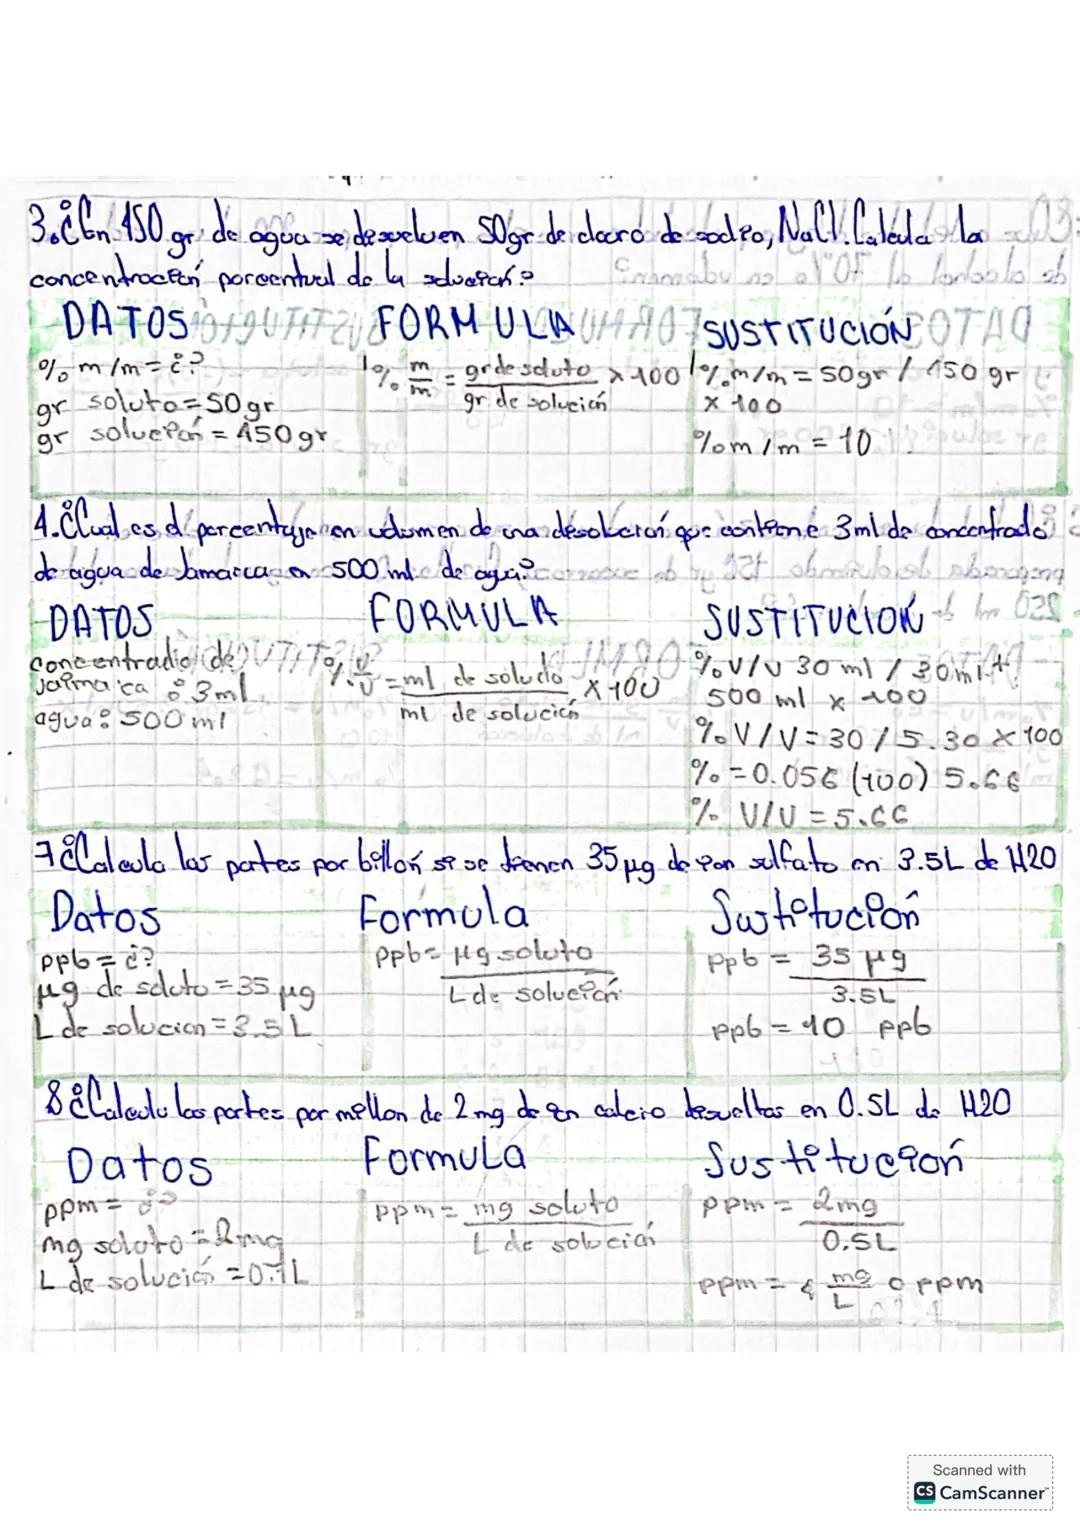 3.¿En 150 gr de agua se desuelven 50gr de cloro de sodio, NaCl. Calcula la
concentración porcentual de la solución?
DATOS FORMULA SUSTITUCIÓN
% m/m = ¿? % m/m = gr de soluto / gr de solución x 100 % m/m = 50gr / 150 gr
gr soluto = 50gr x 100
gr solución = 450gr % m/m = 10
4.¿Cual es el porcentaje en volumen de una desolución que contiene 3ml de concentrado
de agua de Jamaica en 500 ml de agua?
DATOS FORMULA SUSTITUCIÓN
concentrado de % v/v = ml de soludo / ml de solución x 100 % V/V 30 ml / 30ml +
Jaimaica : 3ml 500 ml x 100
agua: 500 ml % V/V = 30 / 5.30 x 100
% = 0.056 (100) 5.66
% V/V = 5.66
7¿Calcula las partes por billón si se tienen 35 µg de ion sulfato en 3.5L de H2O
Datos Formula Sustitución
ppb = ¿? ppb = µg soluto / L de solución ppb = 35 µg / 3.5L
µg de soluto = 35 µg
L de solucion = 3.5 L ppb = 10 ppb
8¿Calculo las partes por millon de 2 mg de en calcio desueltas en 0.5L de H2O
Datos Formula Sustitución
ppm = ¿? ppm = mg soluto / L de solución ppm = 2mg / 0.5L
mg soluto = 2mg
L de solución = 0.1L ppm = 4 mg/L o ppm
Scanned with
CS CamScanner